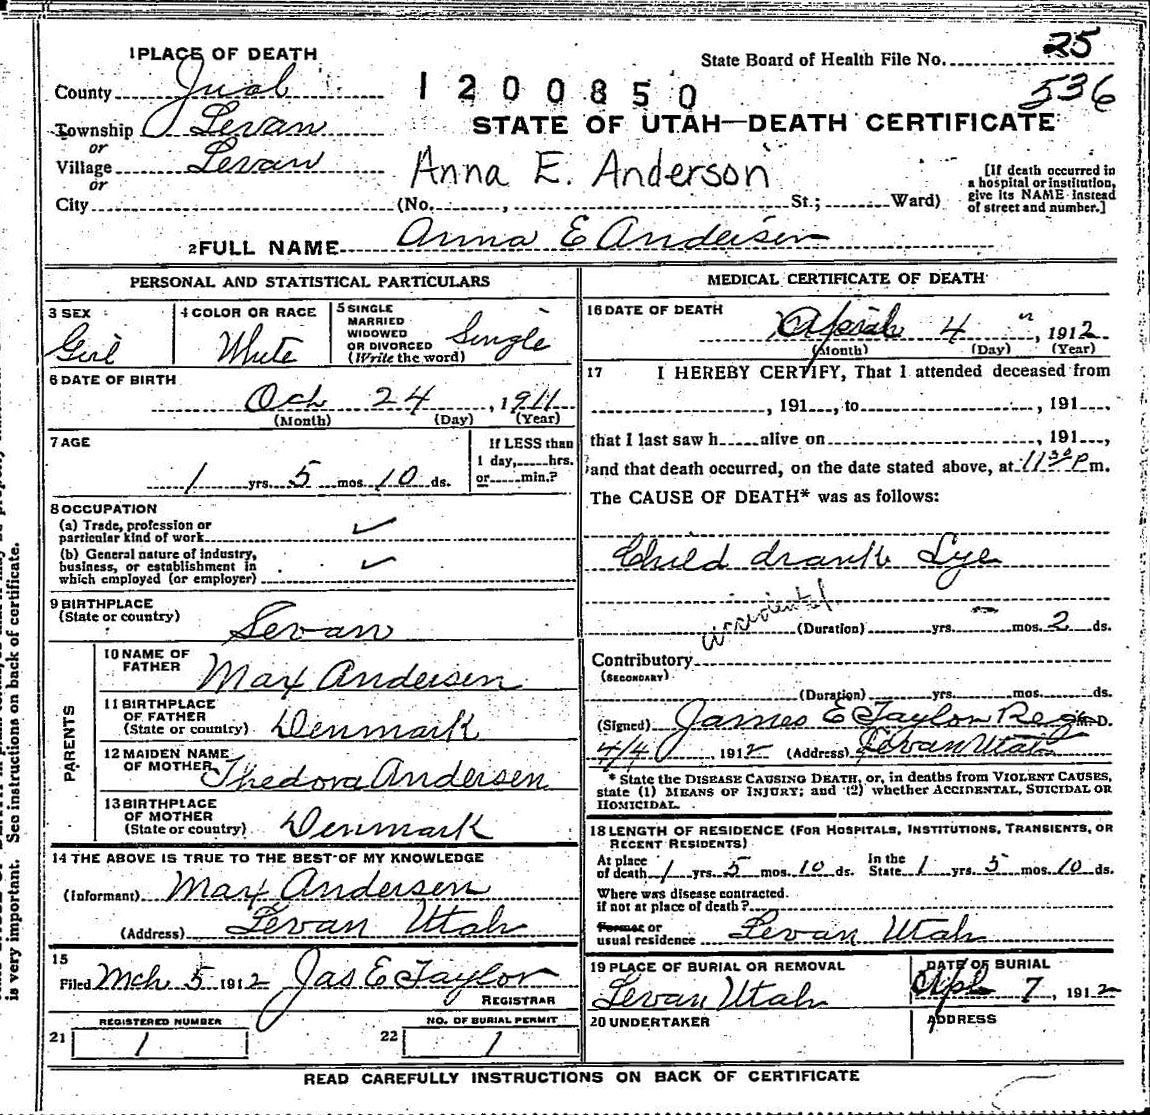 1 PLACE OF DEATH
State Board of Health File No. 25
536
County Juab
1200850
Township Levan
or
STATE OF UTAH—DEATH CERTIFICATE
Village Levan
or
Anna E. Anderson
City (No. , St.; Ward)
[If death occurred in
a hospital or institution,
give its NAME instead
of street and number.]
2 FULL NAME Anna E Andersen
PERSONAL AND STATISTICAL PARTICULARS
3 SEX
Girl
4 COLOR OR RACE
White
5 SINGLE
MARRIED
WIDOWED
OR DIVORCED
(Write the word)
Single
6 DATE OF BIRTH
Oct 24, 1911
(Month) (Day) (Year)
7 AGE
1 yrs. 5 mos. 10 ds.
If LESS than
1 day, hrs.
or min.?
8 OCCUPATION
(a) Trade, profession or
particular kind of work ✓
(b) General nature of industry,
business, or establishment in
which employed (or employer) ✓
9 BIRTHPLACE
(State or country)
Levan
PARENTS
10 NAME OF
FATHER Max Andersen
11 BIRTHPLACE
OF FATHER
(State or country) Denmark
12 MAIDEN NAME
OF MOTHER Thedora Andersen
13 BIRTHPLACE
OF MOTHER
(State or country) Denmark
14 THE ABOVE IS TRUE TO THE BEST OF MY KNOWLEDGE
(Informant) Max Andersen
(Address) Levan Utah
15
Filed Mch 5 1912 Jas E Taylor
REGISTRAR
REGISTERED NUMBER
21 1
NO. OF BURIAL PERMIT
22 1
MEDICAL CERTIFICATE OF DEATH
16 DATE OF DEATH
April 4", 1912
(Month) (Day) (Year)
17 I HEREBY CERTIFY, That I attended deceased from
, 191 , to , 191 ,
that I last saw h alive on , 191 ,
and that death occurred, on the date stated above, at 11 30 P m.
The CAUSE OF DEATH* was as follows:
Child drank Lye
accidental
(Duration) yrs. — mos. 2 ds.
Contributory
(SECONDARY)
(Duration) yrs. mos. ds.
(Signed) James E Taylor Reg M.D.
4/4 1912 (Address) Levan Utah
* State the DISEASE CAUSING DEATH, or, in deaths from VIOLENT CAUSES,
state (1) MEANS OF INJURY; and (2) whether ACCIDENTAL, SUICIDAL OR
HOMICIDAL.
18 LENGTH OF RESIDENCE (FOR HOSPITALS, INSTITUTIONS, TRANSIENTS, OR
RECENT RESIDENTS)
At place
of death 1 yrs. 5 mos. 10 ds.
In the
State 1 yrs. 5 mos. 10 ds.
Where was disease contracted.
if not at place of death?
Former or
usual residence Levan Utah
19 PLACE OF BURIAL OR REMOVAL
Levan Utah
DATE OF BURIAL
Apl 7, 1912
20 UNDERTAKER
ADDRESS
READ CAREFULLY INSTRUCTIONS ON BACK OF CERTIFICATE
is very important. See instructions on back of certificate.